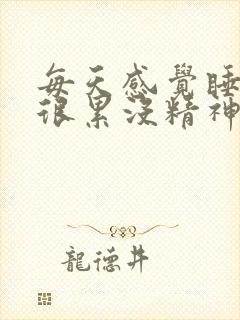 每天感覺睡
很累沒精神
龍德井